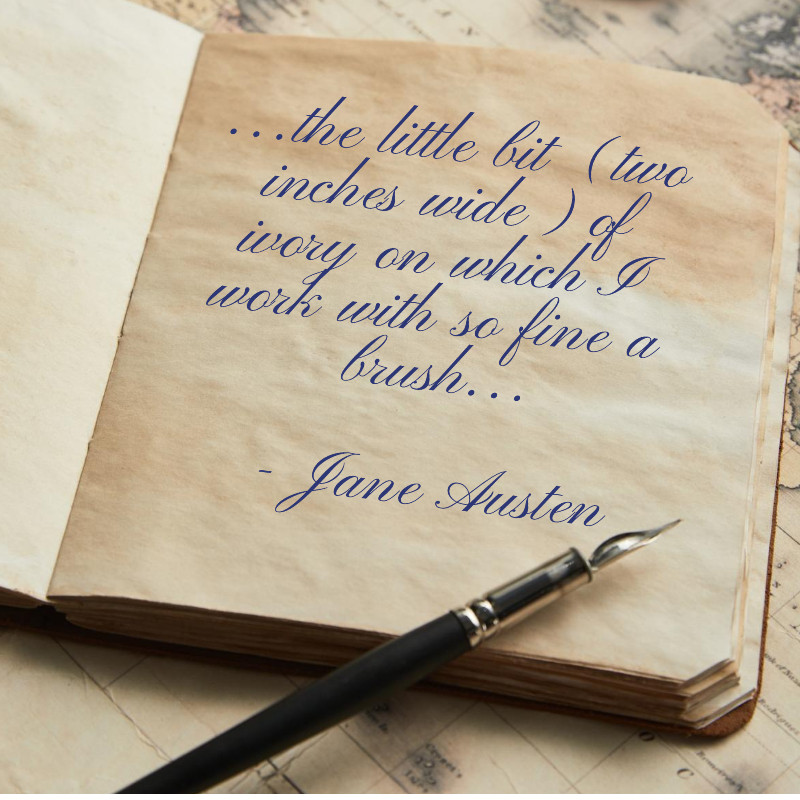 ...the little bit (two
inches wide ) of
ivory on which I
work with so fine a
brush...
- Jane Austen